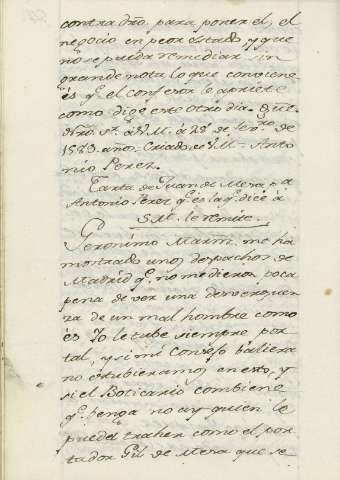 contra dño. para poner el, el
negocio en peor estado y que
no se pueda remediar sin
grande nota lo que conviene
és q.e el confesor le apriete
como dige este otro dia. Gue.
ñro. S.r á V.M. á 28 de
1589 años. Criado de V.M. Anto
nio Perez.
Carta de Juan de Mesa p.a
Antonio Perez q.e és la q.e dice á
S.M. le remite.
Geronimo Marñz. me ha
mostrado unos despachos de
Madrid q.e no me dieron poca
pena de ver una desverguen
za de un mal hombre como
és Yo le tube siempre por
tal, y si mi Consejo baliera
no estubieramos en esto, y
si el Boticario combiene
q.e benga no ay quien le
puede traher como el por
tador Gil de Mesa que se